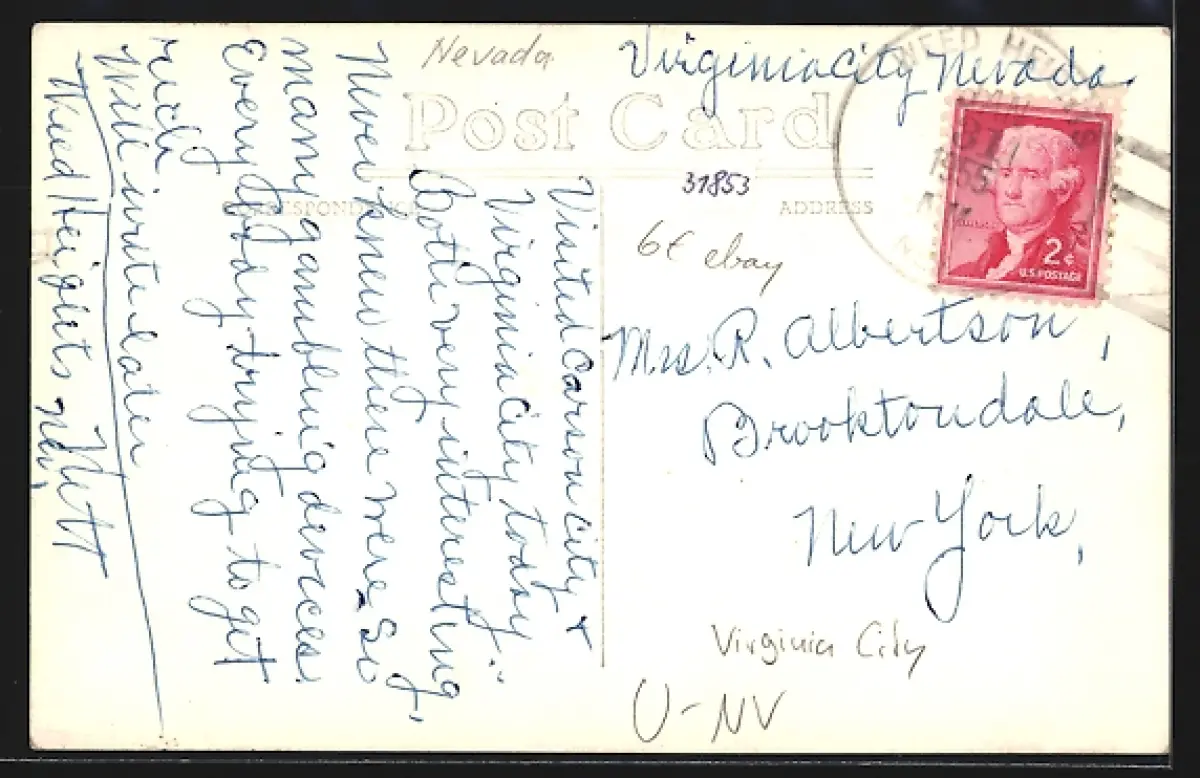 Nevada
Virginia City Nevada.
Post Card
CORRESPONDENCE
ADDRESS
Visited Carson City &
Virginia City today.
Both very interesting,
Never knew there were so
many gambling devices.
Everybody trying to get
rich
Will write later
Weed Heights Nev.
31853
6€ ebay
WEED HEI
1955
2¢
U.S. POSTAGE
Mrs. R. Albertson,
Brooktondale,
New York,
Virginia City
U-NV